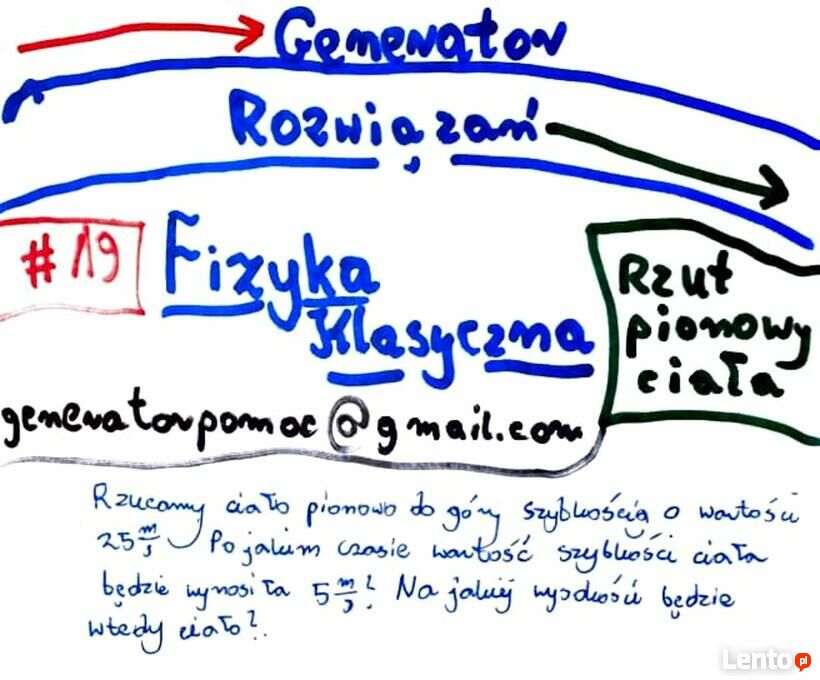 Generator
Rozwiązań
#19
Fizyka
Klasyczna
Rzut
pionowy
ciała
generatorpomoc@gmail.com
Rzucamy ciało pionowo do góry szybkością o wartości
25 m/s. Po jakim czasie wartość szybkości ciała
będzie wynosiła 5 m/s? Na jakiej wysokości będzie
wtedy ciało?
Lento.pl